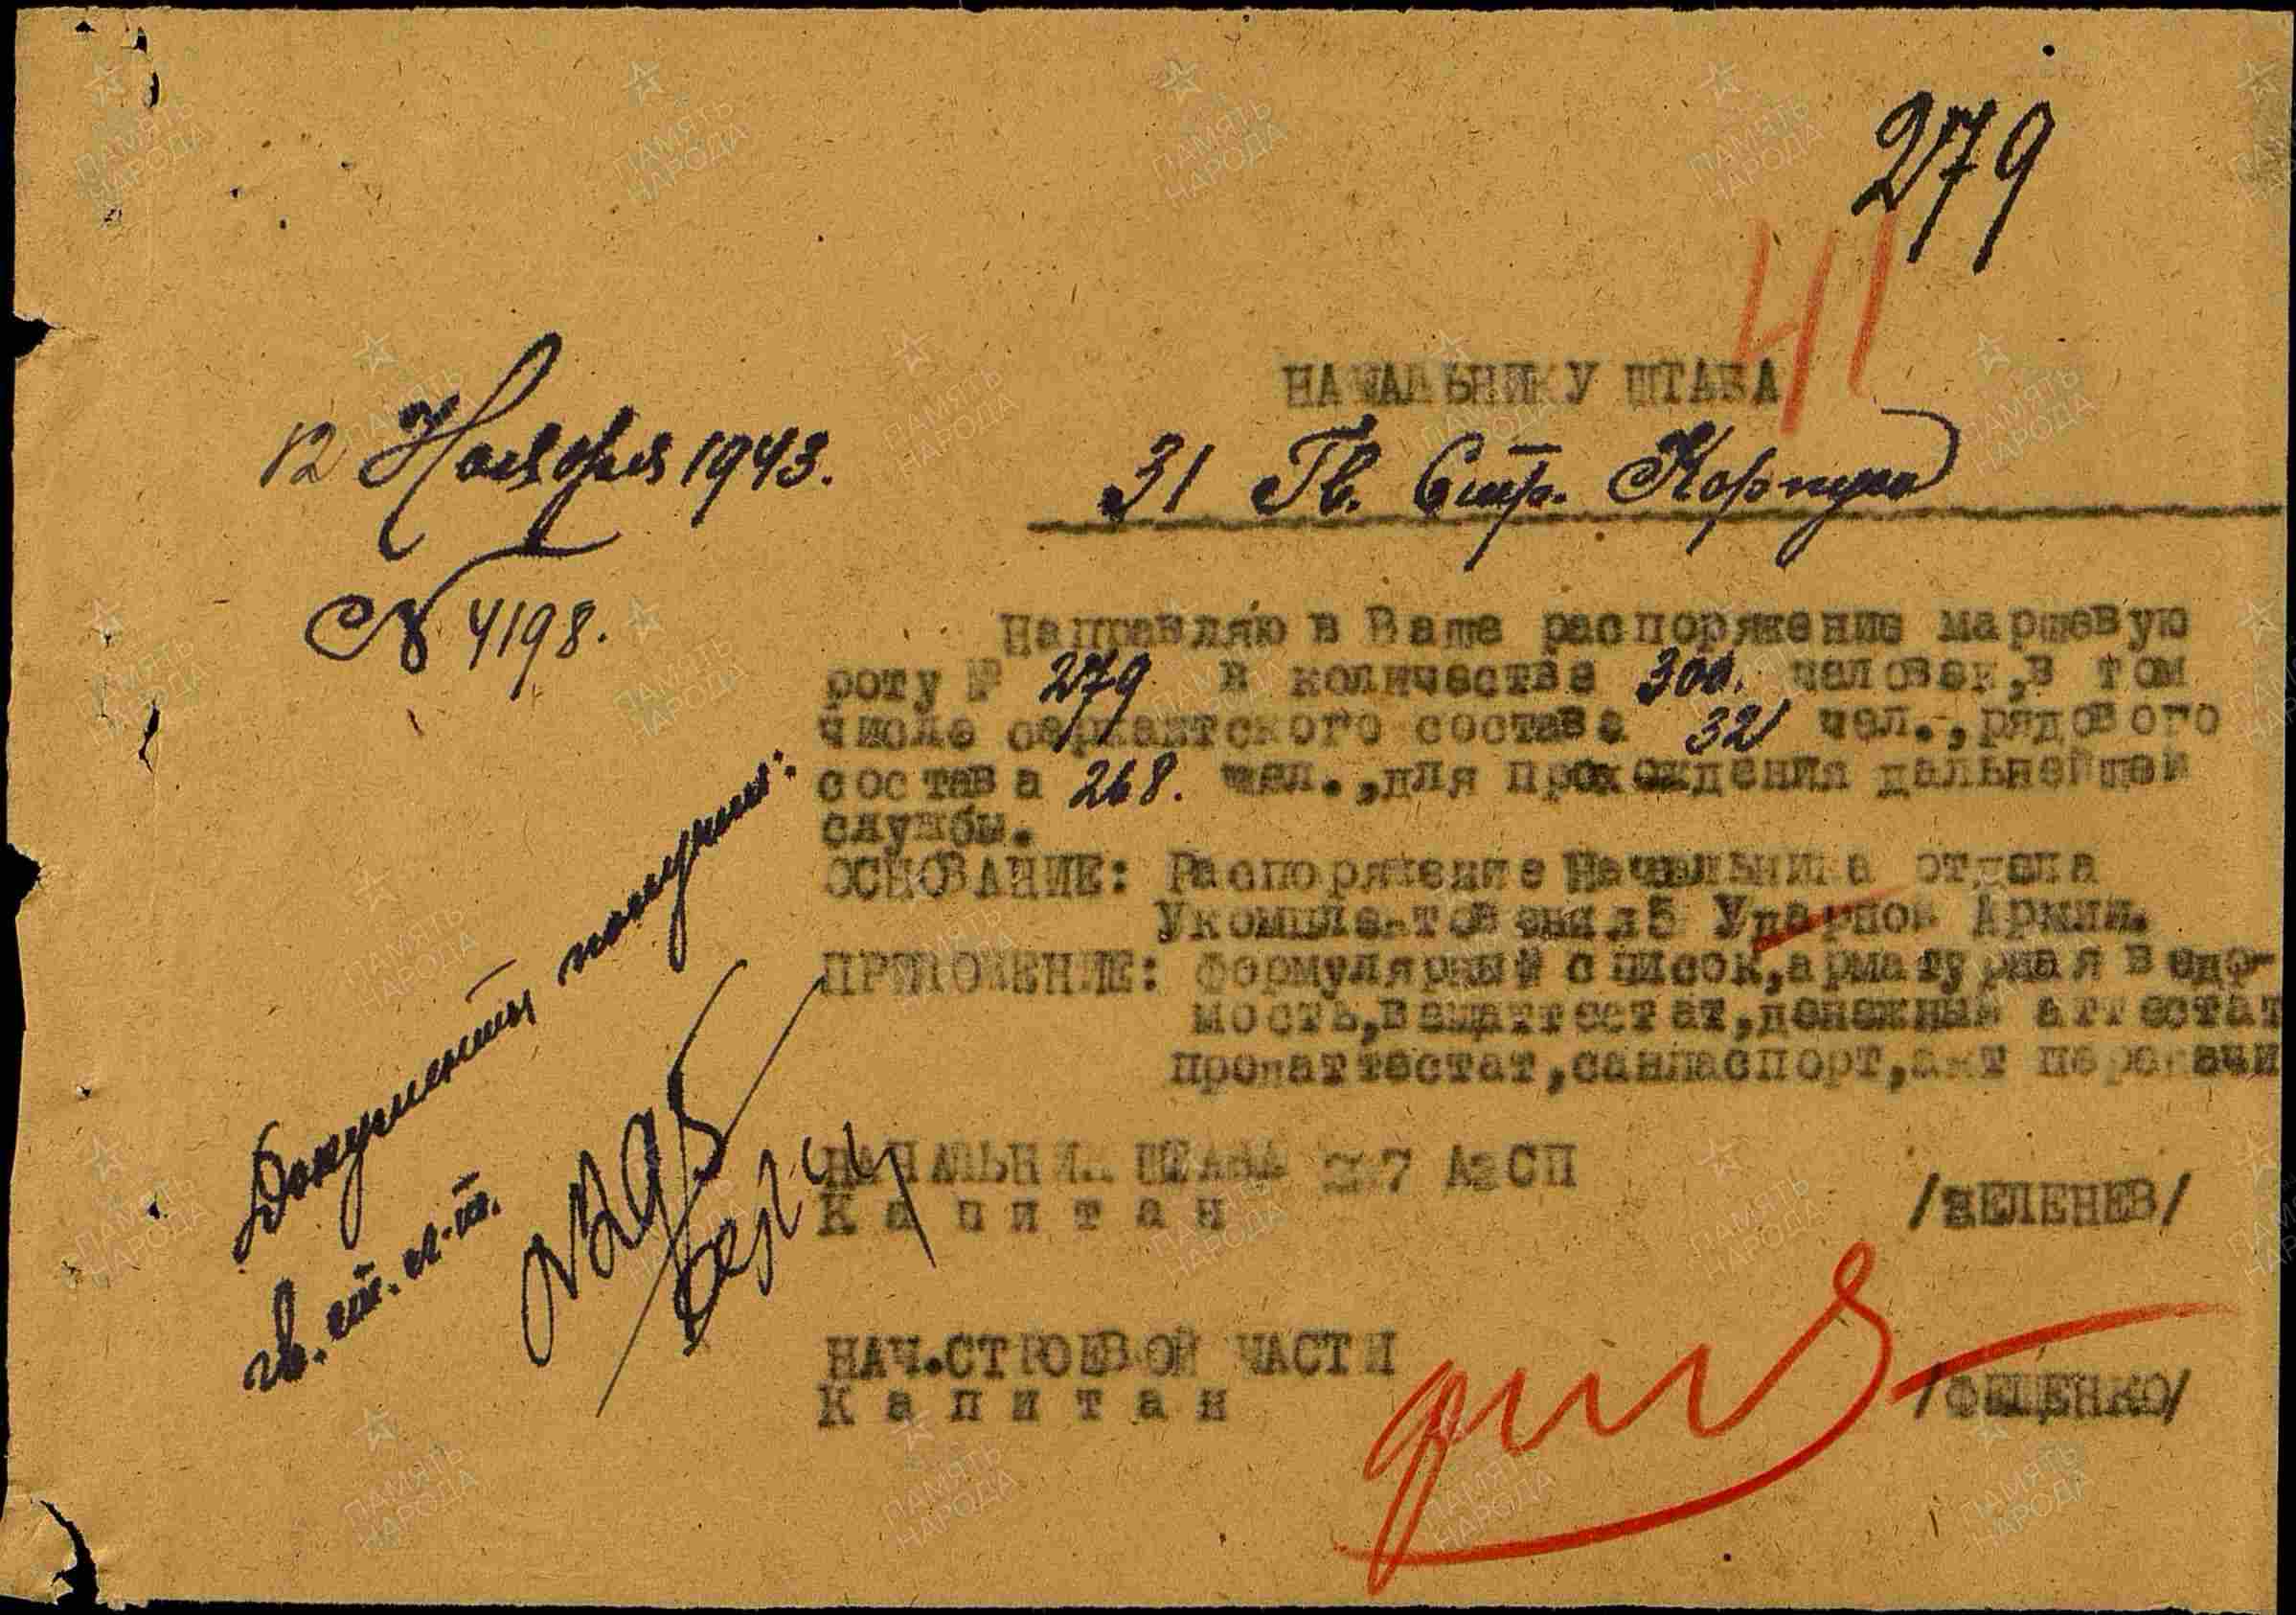 279
41
НАЧАЛЬНИКУ ШТАБА
12 Ноября 1943.
31 Гв. Стр. Корпуса
№ 4198.
Направляю в Ваше распоряжение маршевую
роту № 279 в количестве 300. человек, в том
числе сержантского состава 32 чел., рядового
состава 268. чел., для прохождения дальнейшей
службы.
ОСНОВАНИЕ: Распоряжение Начальника отдела
Укомплектования 5 Ударной Армии.
ПРИЛОЖЕНИЕ: формулярный список, арматурная ведо-
мость, вещаттестат, денежный аттестат
продаттестат, санпаспорт, акт передачи
Документы получил:
гв. ст. л-т.
НАЧАЛЬНИК ШТАБА АЗСП
Капитан /ЗЕЛЕНЕВ/
НАЧ.СТРОЕВОЙ ЧАСТИ
Капитан /ФЕЩЕНКО/
ПАМЯТЬ
НАРОДА